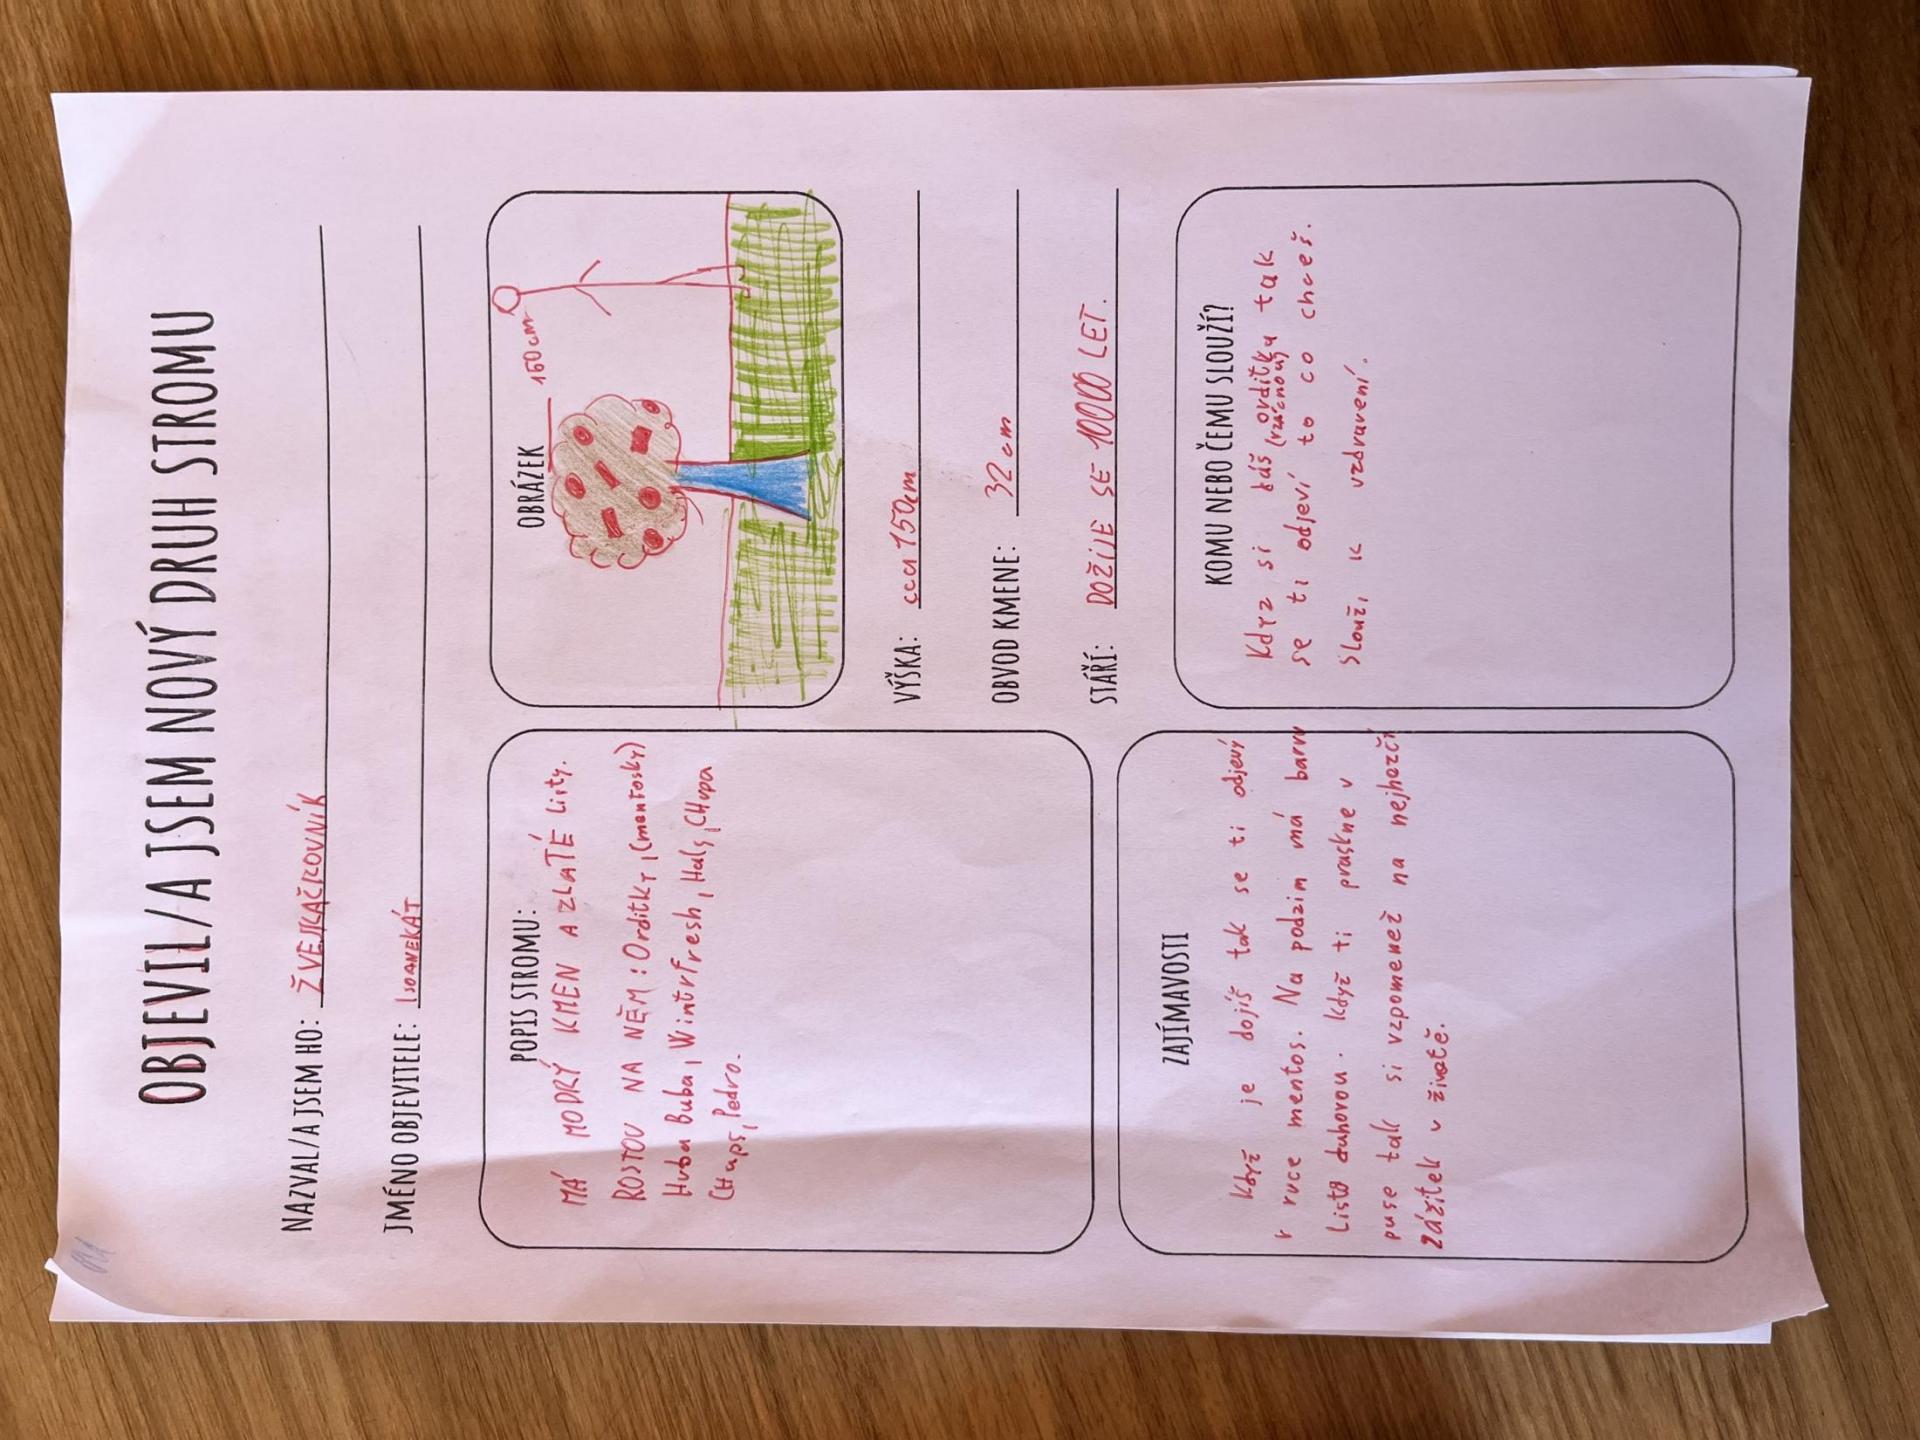 OBJEVIL/A JSEM NOVÝ DRUH STROMU
NAZVAL/A JSEM HO: ŽVEJKAČKOVNÍK
JMÉNO OBJEVITELE:
POPIS STROMU:
MÁ MODRÝ KMEN A ZLATÉ Listy.
ROSTOU NA NĚM: Orditky, (mentosky)
Huba Buba, Wintrfresh, Hals, CHupa
CHups, Pedro.
OBRÁZEK
160cm
VÝŠKA: cca 150cm
OBVOD KMENE: 32cm
STÁŘÍ: DOŽIJE SE 1000 LET.
ZAJÍMAVOSTI
Když je dojíš tak se ti odjevý
v ruce mentos. Na podzim má barvu
Listů duhovou. když ti praskne v
puse tak si vzpomeneš na nejhezčí
zážitek v životě.
KOMU NEBO ČEMU SLOUŽÍ?
Kdyz si dáš orditku tak
(vzácnou)
se ti odjeví to co chceš.
Slouží k uzdravení.